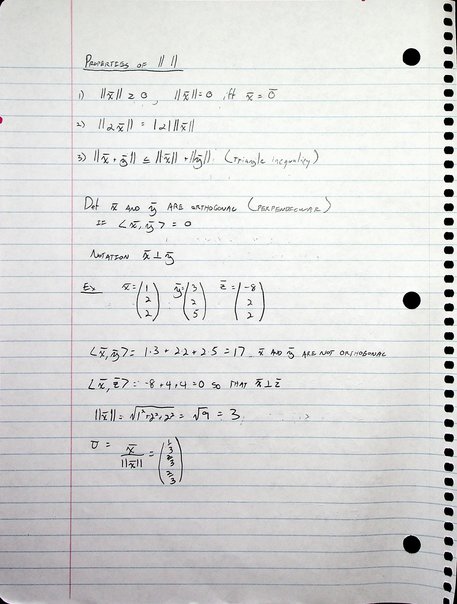 PROPERTIES OF || ||
1) ||x̄|| ≥ 0, ||x̄|| = 0 iff x̄ = 0̄
2) ||αx̄|| = |α| ||x̄||
3) ||x̄ + ȳ|| ≤ ||x̄|| + ||ȳ||. (Triangle inequality)
Def x̄ AND ȳ ARE ORTHOGONAL (PERPENDICULAR)
IF <x̄, ȳ> = 0
NOTATION x̄ ⊥ ȳ
Ex x̄ = (1 2 2) ȳ = (3 2 5) z̄ = (-8 2 2)
<x̄, ȳ> = 1·3 + 2·2 + 2·5 = 17 x̄ AND ȳ ARE NOT ORTHOGONAL
<x̄, z̄> = -8 + 4 + 4 = 0 SO THAT x̄ ⊥ z̄
||x̄|| = √1²+2²+2² = √9 = 3
Ū = x̄/||x̄|| = (1/3 2/3 2/3)